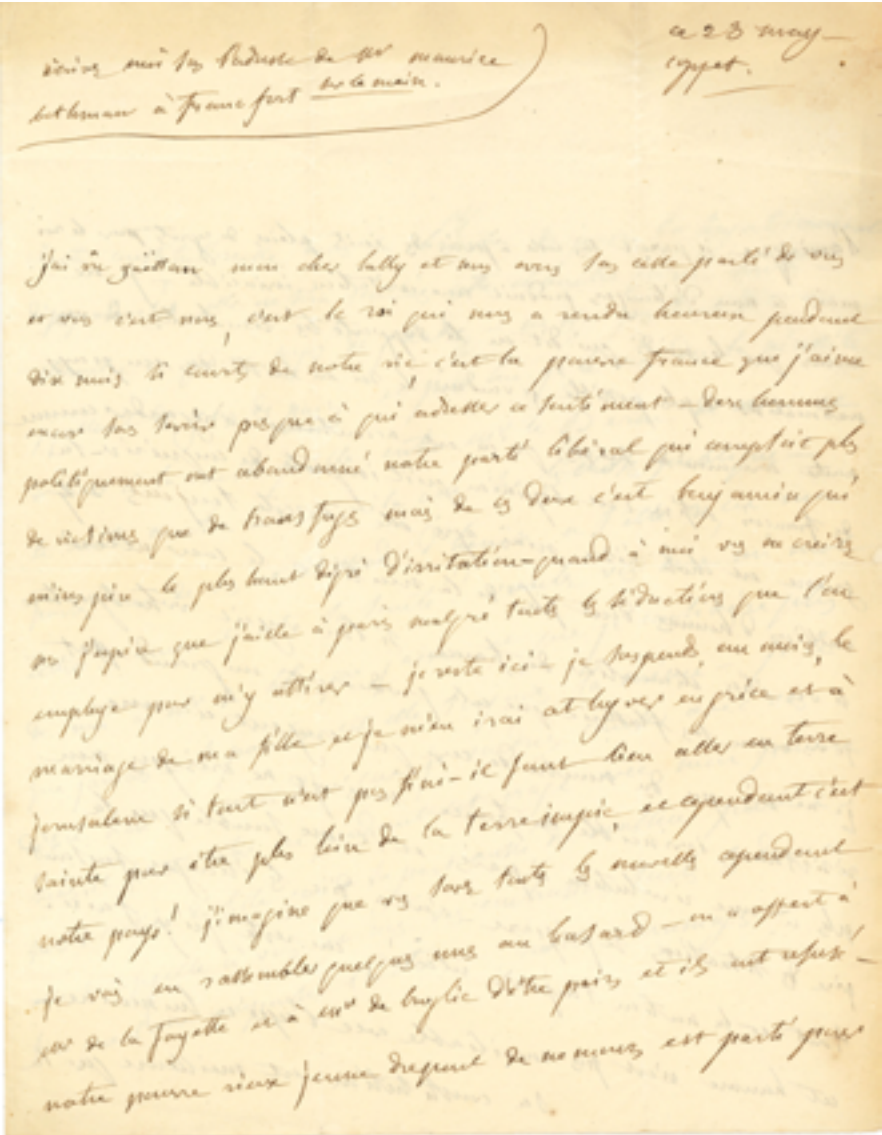 écrivez moi sous l'adresse de Mr maurice
bethman à francfort sur le mein.
ce 23 may
coppet.
j'ai vu gaëttan mon cher lally et nous avons sans cesse parlé de vous
et vous c'est nous, c'est le roi qui nous a rendu heureux pendant
dix mois si courts de notre vie, c'est la pauvre france que j'aime
encore sans savoir presque à qui adresser ce sentiment – deux hommes
politiquement ont abandonné notre parti libéral qui comptait plus
de victimes que de transfuges mais de ces deux c'est benjamin qui
m'inspire le plus haut degré d'irritation – quand à moi vous ne croirez
pas j'espère que j'aille à paris malgré toutes les séductions que l'on
employe pour m'y attirer – je reste ici – je suspends, au moins, le
marriage de ma fille et je m'en irai cet hyver en grèce et à
jerusalem si tout n'est pas fini – il faut bien aller en terre
sainte pour être plus loin de la terre impie, et cependant c'est
notre pays! j'imagine que vous savez toutes les nouvelles cependant
je vais en rassembler quelques unes au hasard – on a offert à
mr de la fayette et à mr de broglie d'être pairs et ils ont refusé –
notre pauvre vieux jeune dupont de nemours est parti pour